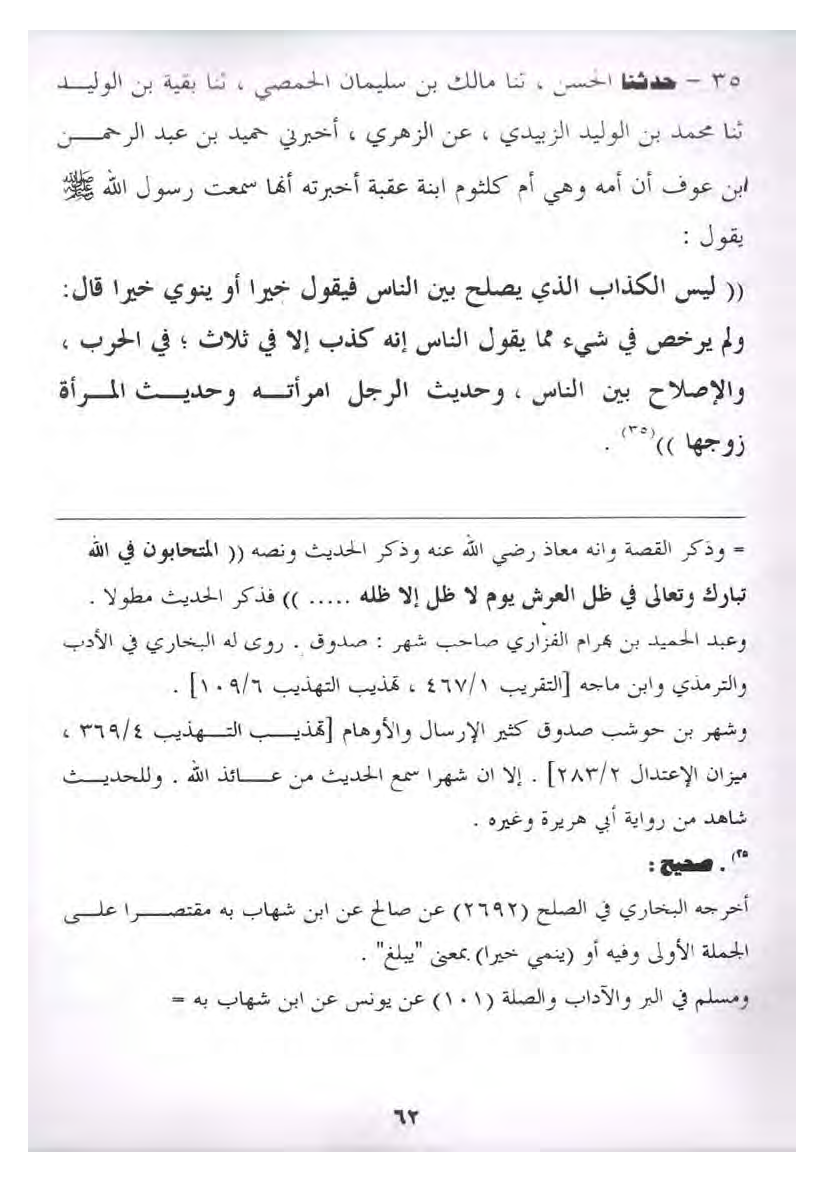 ٣٥ – حدثنا الحسن ، ثنا مالك بن سليمان الحمصي ، ثنا بقية بن الوليد
ثنا محمد بن الوليد الزبيدي ، عن الزهري ، أخبرني حميد بن عبد الرحمن
ابن عوف أن أمه وهي أم كلثوم ابنة عقبة أخبرته أنها سمعت رسول الله ﷺ
يقول :
(( ليس الكذاب الذي يصلح بين الناس فيقول خيرا أو ينوي خيرا قال:
ولم يرخص في شيء مما يقول الناس إنه كذب إلا في ثلاث ؛ في الحرب ،
والإصلاح بين الناس ، وحديث الرجل امرأته وحديث المرأة
زوجها ))(٣٥) .
= وذكر القصة وانه معاذ رضي الله عنه وذكر الحديث ونصه (( المتحابون في الله
تبارك وتعالى في ظل العرش يوم لا ظل إلا ظله ..... )) فذكر الحديث مطولا .
وعبد الحميد بن بهرام الفزاري صاحب شهر : صدوق . روى له البخاري في الأدب
والترمذي وابن ماجه [التقريب ٤٦٧/١ ، تهذيب التهذيب ١٠٩/٦] .
وشهر بن حوشب صدوق كثير الإرسال والأوهام [تهذيب التهذيب ٣٦٩/٤ ،
ميزان الإعتدال ٢٨٣/٢] . إلا ان شهرا سمع الحديث من عائذ الله . وللحديث
شاهد من رواية أبي هريرة وغيره .
(٣٥) . صحيح :
أخرجه البخاري في الصلح (٢٦٩٢) عن صالح عن ابن شهاب به مقتصرا على
الجملة الأولى وفيه أو (ينمي خيرا) بمعنى "يبلغ" .
ومسلم في البر والآداب والصلة (١٠١) عن يونس عن ابن شهاب به =
٦٢